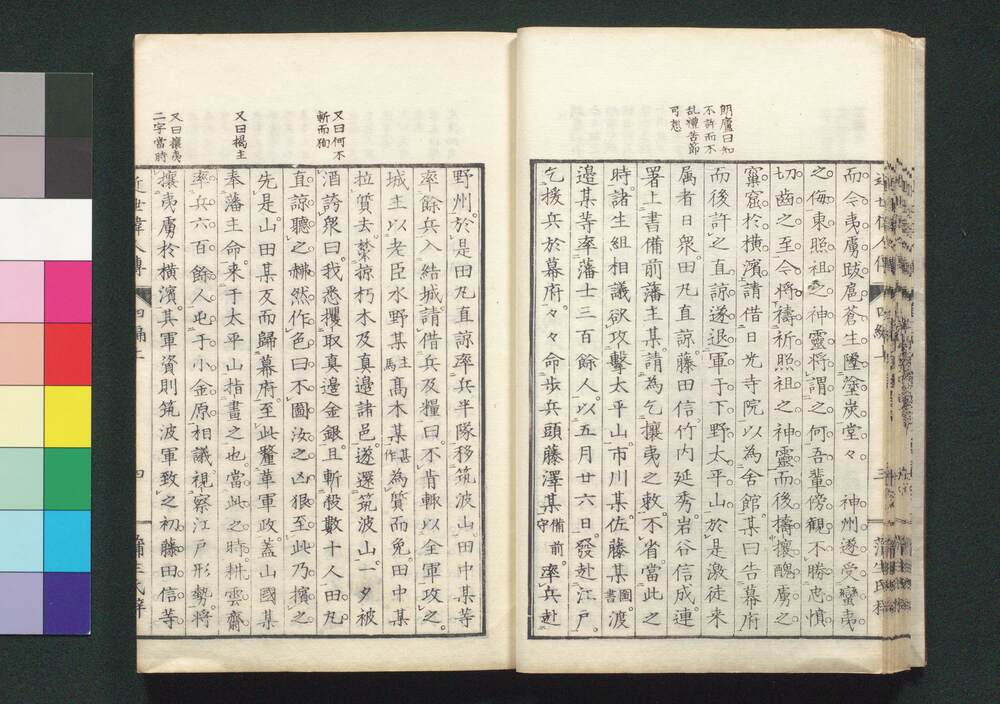 明廬曰知
不許而不
乱禮苦節
可想
而令夷虜跋扈蒼生墜塗炭堂々　神州遂受蠻夷
之侮東照祖之神靈將謂之何吾輩傍觀不勝忠憤
切齒之至今將禱祈照祖之神靈而後擣攘醜虜之
窠窟於橫濱請借日光寺院以為舍館某曰告幕府
而後許之直諒遂退軍于下野太平山於是激徒來
属者日衆田丸直諒藤田信竹内延秀岩谷信成連
署上書備前藩主某請為乞攘夷之敕不省當此之
時諸生組相議欲攻擊太平山市川某佐藤某圖書渡
邉某等率藩士三百餘人以五月廿六日發赴江戸
乞援兵於幕府々々命歩兵頭藤澤某備前守率兵赴
又曰何不
斬而徇
又曰揭主
又曰攘夷
二字當時
野州於是田丸直諒率兵半隊移筑波山田中某等
率餘兵入結城請借兵及糧曰不肯輙以全軍攻之
城主以老臣水野某主馬髙木某甚作為質而免田中某
拉質去葉掠栃木及真邉諸邑遂還筑波山一夕被
酒誇衆曰我悉攫取真邉金銀且斬殺數十人田丸
直諒聽之赫然作色曰不圖汝之凶狠至此乃擯之
先是山田某叐而歸幕府至此釐革軍政蓋山國某
奉藩主命來于太平山指畫之也當此之時耕雲齋
率兵六百餘人屯于小金原相議視察江戸形勢將
攘夷虜於橫濱其軍資則筑波軍致之初藤田信等
近世偉人傳　四編上　四　蒲生氏